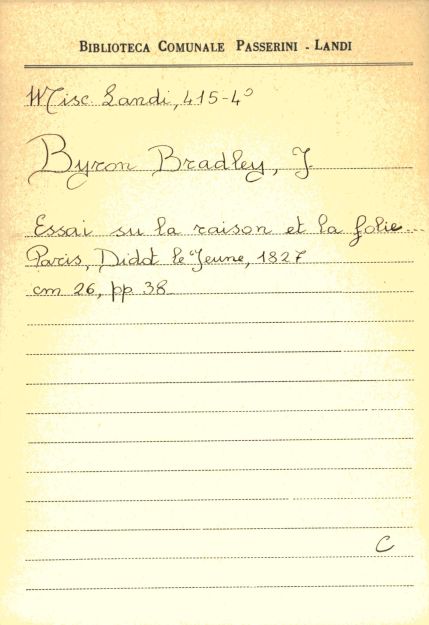 BIBLIOTECA COMUNALE PASSERINI - LANDI
Misc. Landi, 415-4°
Byron Bradley, J.
Essai su la raison et la folie...
Paris, Didot le Jeune, 1827
cm 26, pp 38
C